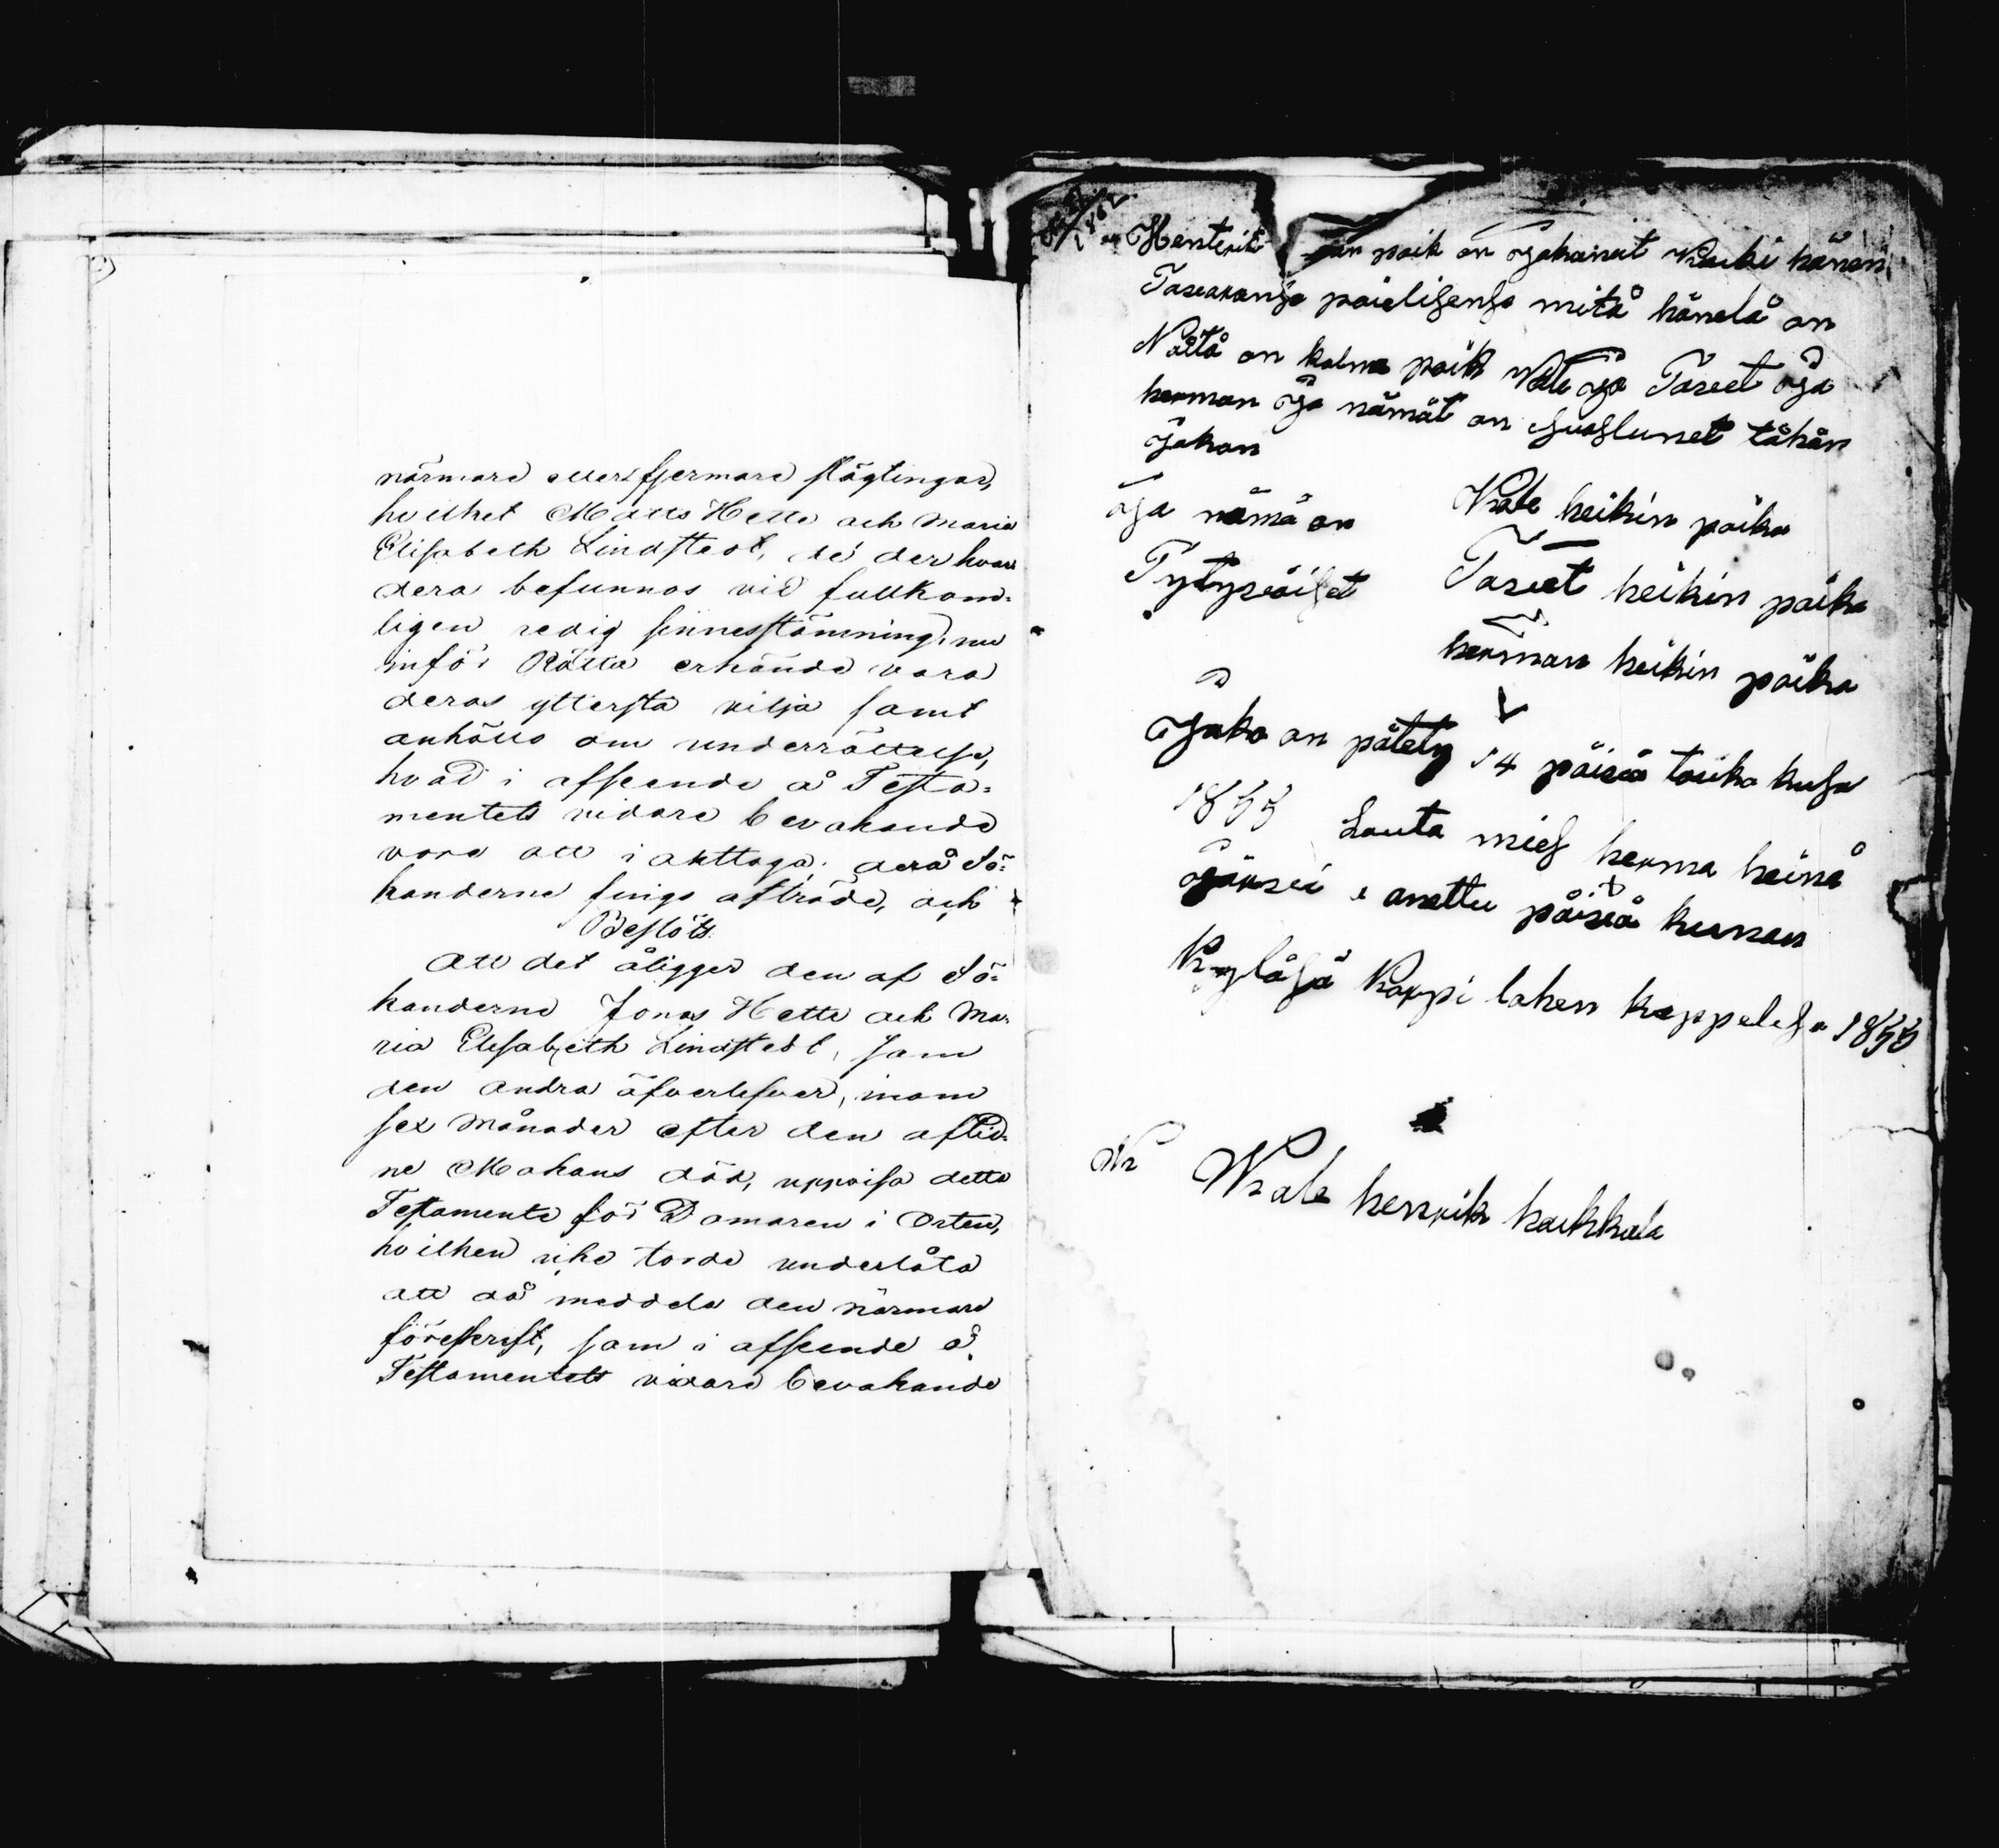 närmare eller fjermare slägtingar,
hvilket Matts Hette och Maria
Elisabeth Lindstedt, då de hvar
dera befunnos vid fullkom-
ligen redig sinnesstämning, nu
inför Rätta erkände vara
deras yttersta vilja samt
anhöllo om underrättelse,
hvad i afseende å Testa-
mentets vidare bevakande
vore att i akttaga; derå Sö-
kanderne fingo afträda, och
Beslöts:
Att det åligger den af Sö-
kanderne Jonas Hette och Ma-
ria Elisabeth Lindstedt, som
den andra öfverlefver, inom
sex Månader efter den aflid-
ne Makans död, uppvisa detta
Testamente för Domaren i Orten,
hvilken icke torde underlåta
att då meddela den närmare
föreskrift, som i afseende å
Testamentets vidare bevakande
1862
Henterik poik on Jakanut Kaiki hänen
Tavaransa päälisensä mitä hänelä on
Näitä on kolme poik Kale ja Tavet Ja
herman Ja nämät on suoslunet tähän
Jakon
Ja nämä on Kale heikin poika
Tytyväiset Tavet heikin poika
herman heikin poika
Jako on pätety 14 päivä touko kusa
1855 Lauta mies herma heinä
Järvei anettu päivä kunan
Kyläsä Karpi lahen kappelisa 1855
Kale henrik kaikkala